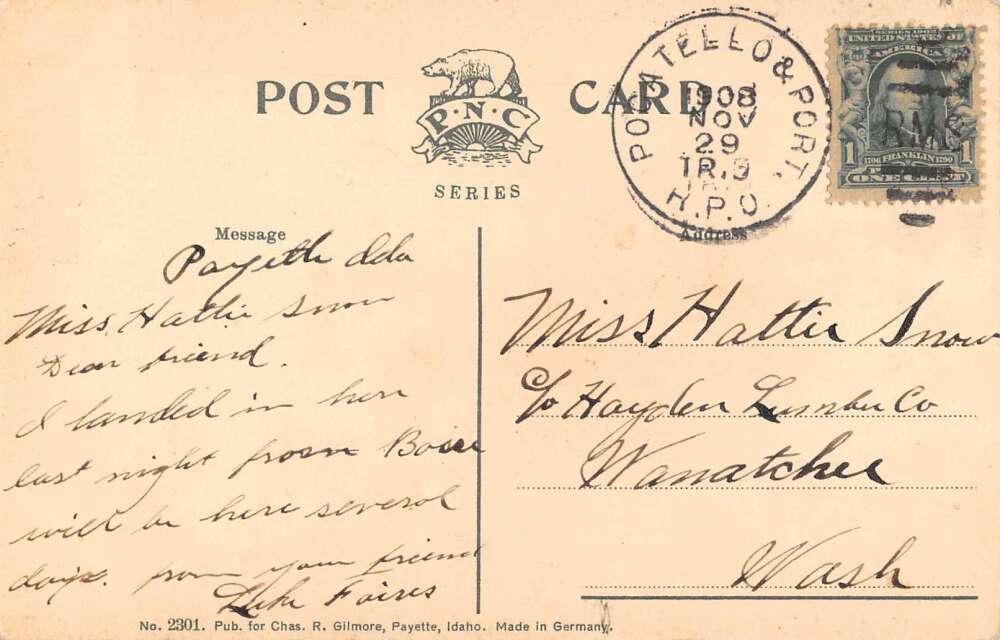 POST CARD
P·N·C
SERIES
POCATELLO & PORT.
1908
NOV
29
TR.9
R.P.O.
SERIES 1902
UNITED STATES OF
AMERICA
1 1706 FRANKLIN 1790 1
ONE CENT
RMS
Message
Payette Ida
Miss, Hattie Snow
Dear friend.
I landed in here
last night from Boise
will be here several
days. from your friend
Luke Faires
Address
Miss Hattie Snow
c/o Hayden Lumber Co
Wanatchee
Wash
No. 2301. Pub. for Chas. R. Gilmore, Payette, Idaho. Made in Germany.